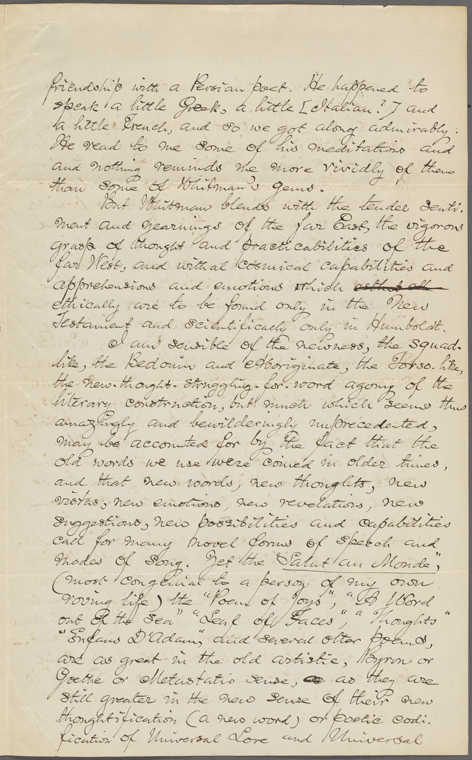 friendship with a Persian poet. He happened to
speak a little Greek, a little [Italian?] and
a little French, and so we got along admirably.
He read to me some of his meditations and
and nothing reminds me more vividly of them
than some of Whitman's gems.
But Whitman blends with the tender senti-
ment and yearnings of the far East, the vigorous
grasp of thought and practicabilities of the
far West, and withal cosmical capabilities and
apprehensions and emotions which
ethically are to be found only in the New
Testament and scientifically only in Humboldt.
I am sensible of the newness, the squad-
like, the Bedouin and aboriginate, the Torso-like,
the new-thought-struggling-for-word agony of the
literary construction, but much which seems thus
amazingly and bewilderingly unprecedented,
may be accounted for by the fact that the
old words we use were coined in older times,
and that new words, new thoughts, new
truths, new emotions, new revelations, new
suggestions, new possibilities and capabilities
call for many novel forms of speech and
modes of song. Yet the "Salut au Monde",
(most congenial to a person of my own
roving life) the "Poem of Joys", "A Word
out of the Sea" "Leaf of Faces", "Thoughts"
"Enfans D'Adam", and several other poems,
are as great in the old artistic, Byron or
Goethe or Metastatio sense, as they are
still greater in the new sense of their new
thoughtsification (a new word) or poetic codi-
fication of Universal Love and Universal